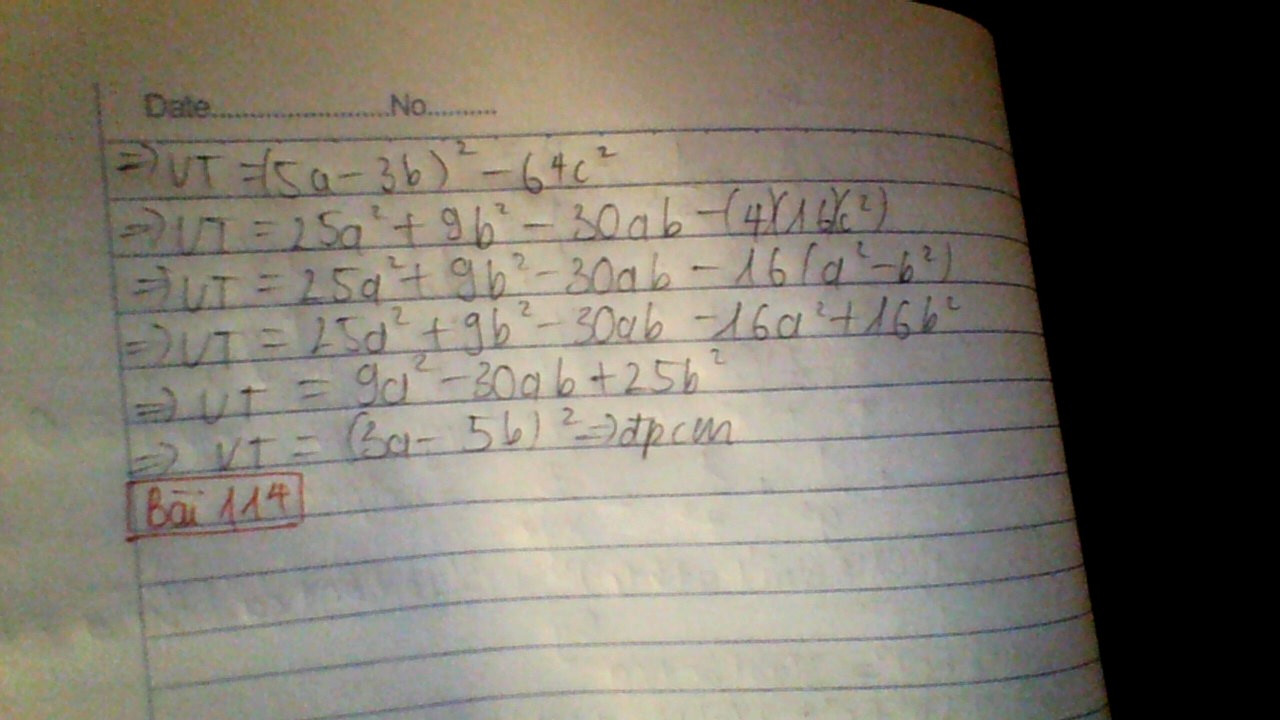 Date......................No..........
=> VT = (5a - 3b)² - 64c²
=> VT = 25a² + 9b² - 30ab - (4)(16)(c²)
=> VT = 25a² + 9b² - 30ab - 16(a² - b²)
=> VT = 25a² + 9b² - 30ab - 16a² + 16b²
=> VT = 9a² - 30ab + 25b²
=> VT = (3a - 5b)² => đpcm
Bài 114